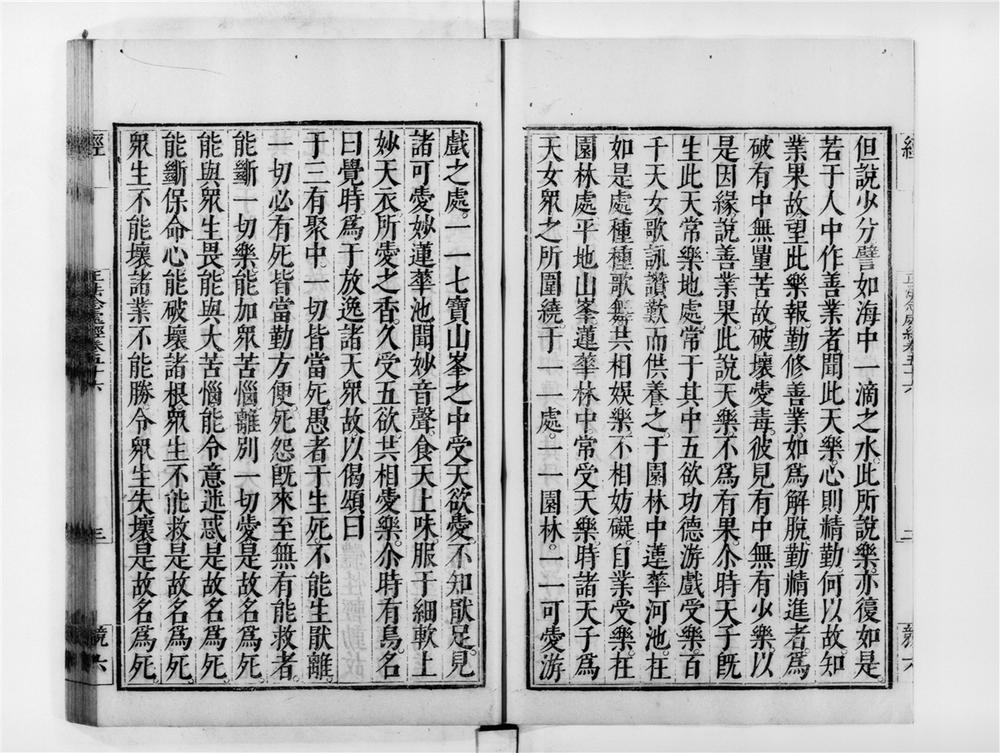 但說少分譬如海中一滴之水此所說樂亦復如是
若于人中作善業者聞此天樂心則精勤何以故知
業果故望此樂報勤修善業如爲解脫勤精進者爲
破有中無量苦故破壞愛毒彼見有中無有少樂以
是因緣說善業果此說天樂不爲有果尒時天子旣
生此天常樂地處常于其中五欲功德游戲受樂百
千天女歌詠讚歎而供養之于園林中蓮華河池在
如是處種種歌舞共相娛樂不相妨礙自業受樂在
園林處平地山峯蓮華林中常受天樂時諸天子爲
天女眾之所圍繞于一一處一一園林一一可愛游
戲之處一一七寶山峯之中受天欲愛不知厭足見
諸可愛妙蓮華池聞妙音聲食天上味服于細軟上
妙天衣所愛之香久受五欲共相愛樂尒時有鳥名
曰覺時爲于放逸諸天眾故以偈頌曰
于三有聚中一切皆當死愚者于生死不能生厭離
一切必有死皆當勤方便死怨旣來至無有能救者
能斷一切樂能加眾苦惱離別一切愛是故名爲死
能與眾生畏能與大苦惱能令意迷惑是故名爲死
能斷保命心能破壞諸根眾生不能救是故名爲死
眾生不能壞諸業不能勝令眾生失壞是故名爲死
經
正法念處經卷五十六
三
競六